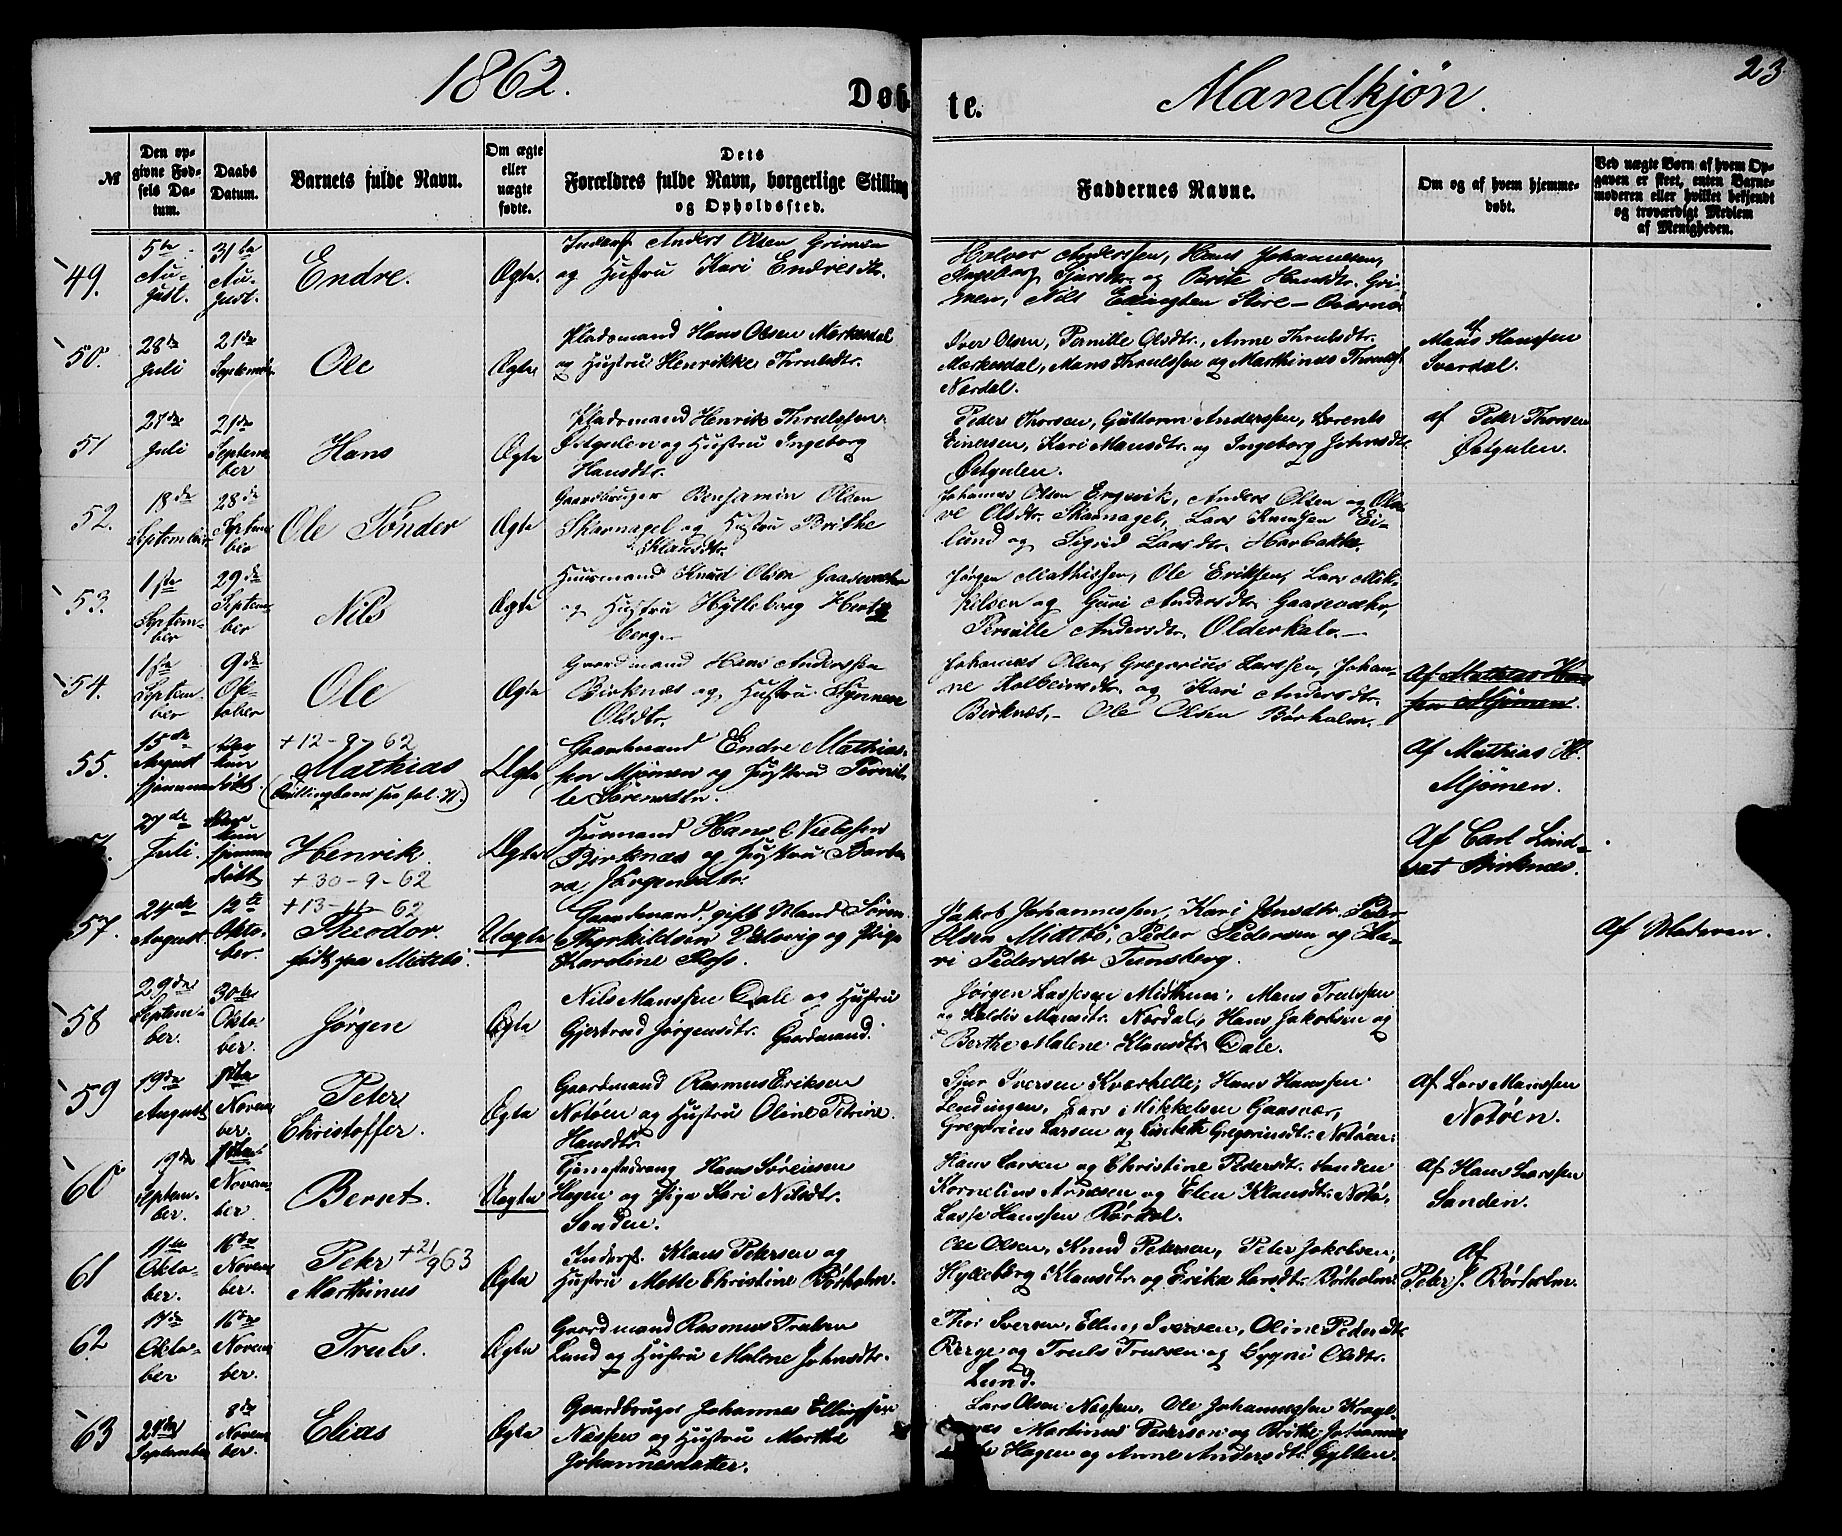 1862.
Døb
te.
Mandkjøn.
23
№
Den op-
givne Fød-
sels Da-
tum.
Daabs
Datum.
Barnets fulde Navn.
Om ægte
eller
uægte
fødte.
Dets
Forældres fulde Navn, borgerlige Stilling
og Opholdssted.
Faddernes Navne.
Om og af hvem hjemme-
døbt.
Ved uægte Børn af hvem Op-
gaven er skeet, enten Barne-
moderen eller hvilket bekjendt
og troværdigt Medlem
af Menigheden.
49.
5te
Au-
gust.
31te
Au-
gust.
Endre.
Ægte.
Inderst Anders Olsen Grimen
og Hustru Kari Endresdtr.
Halvor Anderssen, Hans Johannesen,
Ingeborg Sjursdtr. og Brite Hansdtr. Gri-
men, Nils
50.
28de
Juli
21de
Septembr
Ole
Ægte.
Pladsmand Hans Olsen Markusdal
og Hustru Henrikke Thrulsdtr.
Iver Olsen, Pernille Olsdtr., Anne Thrulsdtr.
Mans Thrulssen og Marthinus Thrulss.
Nordal.
af
Mans Hanssen
Svardal.
51
27de
Juli
21de
Septem
ber
Hans
Ægte
Pladsmand Henrik Thrulssen
Østgulen og Hustru Ingeborg
Hansdtr.
Peder Thorsen, Guttorm Anderssen, Lorents
Einersen, Kari Mansdtr. og Ingeborg Johnsdtr.
Østgulen.
af Peter Thorsen
Østgulen.
52.
18de
September
28de
Septem
ber
Ole Tønder
Ægte
Gaardbruger Benjamin Olsen
Skarnagel og Hustru Brithe
Klausdtr.
Johannes Olsen Engevik, Anders Olsen og Oli-
ve Olsdtr. Skarnagel, Lars Knudsen Ei-
lund og Sigrid Larsdtr. Harbakke.
53.
1ste
Septem-
ber
29de
Septem
ber
Nils
Ægte
Huusmand Knud Olsen Gaasevær
og Hustru Hylleborg Hertz
berg.-
Jørgen Mathissen, Ole Eriksen, Lars Mik-
kelsen og Guri Andersdtr. Gaasevær,
Pernille Andersdtr. Olderkalv.-
54.
1ste
Septem-
ber
9de
Ok-
tober
Ole
Ægte
Gaardmand Hans Anderssen
Birknæs og Hustru Synneve
Olsdtr.
Johannes Olsen, Gregorius Larssen, Johan-
ne Kolbeinsdtr. og Kari Andersdtr.
Birknæs,- Ole Olsen Børholm.
Af Mathias Han
sen Mjømen.
55.
15de
August
hjemme
kun
døbt.
+12-9-62
Mathias
(Tvillingbarn see fol. 71.)
Ægte
Gaardmand Endre Mathias-
sen Mjømen og Hustru Pernil-
le Sørensdtr.
Af Mathias H.
Mjømen.
27de
Juli.
kun
hjemme
døbt
Henrik.
+30-9-62
Ægte
Husmand Hans Nielssen
Birknæs og Hustru Barba
ra Jørgensdtr.
Af Carl Lind-
Birknæs.
57.
24de
August
12te
Okto-
ber.
+13-11-62
Theodor.
født paa Midtbø.
Uægte
Gaardmand, gift Mand Søren
Thorkildsen og Pige
Karoline Ross.
Jakob Johannessen, Kari Jensdtr., Peder
Olsen Midtbø, Peder Pedersen og Ka-
ri Pedersdtr. Tunsberg.
Af Moderen.
58
29de
Septem-
ber.
30te
Okto
ber.
Jørgen
Ægte
Nils Manssen Dale og Hustru
Gjertrud Jørgensdtr. Gaardmand.
Jørgen Lassesen Midthun, Mans Trulssen
og Mansdtr. Nordal, Hans Jakobsen og
Berthe Malene Klausdtr. Dale.
59
19de
August
Novem
ber.
Peter
Christoffer.
Ægte
Gaardmand Rasmus Eriksen
Notøen og Hustru Oline Petrine
Hansdtr.
Sjur Iversen Kværhelle, Hans Hanssen
Lendingen, Lars Mikkelsen Gaasvær,
Gregorius Larsen og Lisbeth Gregoriusdtr. Notøen.
Af Lars Manssen
Notøen.
60
19de
Septem-
ber.
Novem-
ber.
Berset.
Uægte
Tjenestedreng Hans Sørensen
Hagen og Pige Kari Nilsdtr.
Sanden.
Hans Larsen og Christine Pedersdtr. Sanden
Kornelius Arnesen og Elen Klausdtr. Notø,
Lasse Hanssen Rørdal.
Af Hans Larssen
Sanden.
61
11te
Okto-
ber.
16de
Novem
ber.
Peter +21/9 63
Marthinus
Ægte
Inderst. Klaus Petersen og
Hustru Mette Christine Børholm.
Ole Olsen, Knud Petersen, Peter Jakobsen,
Hylleborg Klausdtr. og Erika Larsdtr. Børholm.
Af
Peter J. Børholm.
62
17de
Okto-
ber
16de
Novem
ber.
Truls.
Ægte
Gaardmand Rasmus Trulsen
Lund og Hustru Malene Johnsdtr.
Thor Iversen, Elling Iversen, Oline Pedersdtr.
Berge og Truls Trulsen og Sygni Olsdtr.
Lund.
63
September
8de
Novem
ber.
Elias
Ægte
Gaardbruger Johannes Ellingssen
Næssen og Hustru Marthe
Johannesdatter.
Lars Olsen Næssen, Ole Johannessen
Martinus Pedersen og Brithe Johannes
Hagen og Anne Andersdtr. Gylten.